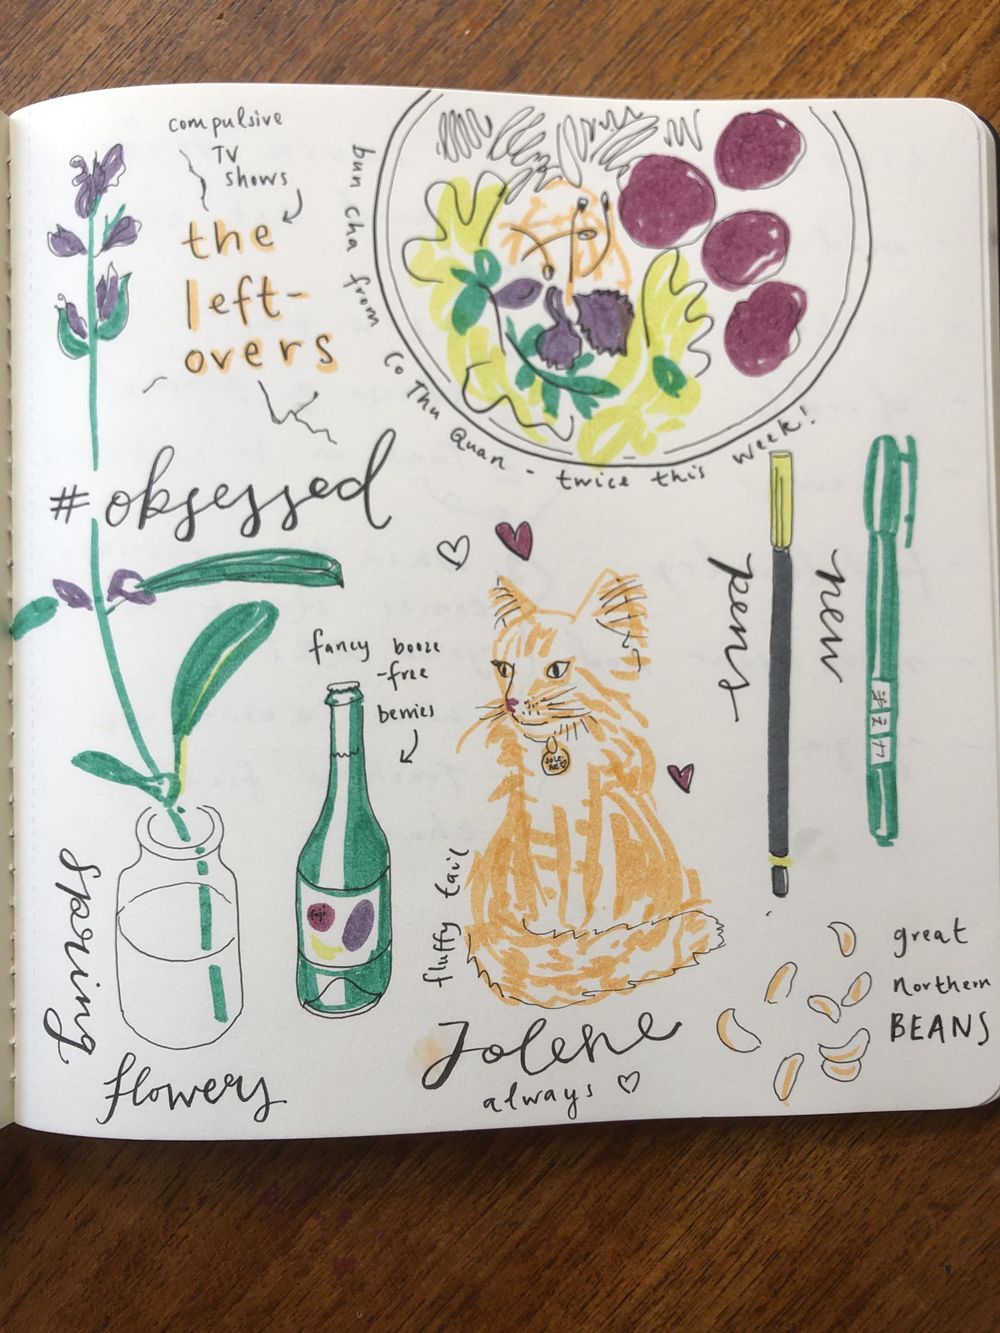 compulsive
TV
shows
the
left-
overs
bun cha from Co Thu Quan - twice this week!
#obsessed
new
pens
fancy booze
-free
berries
fluffy tail
Jolene
always
spring
flowers
great
northern
BEANS